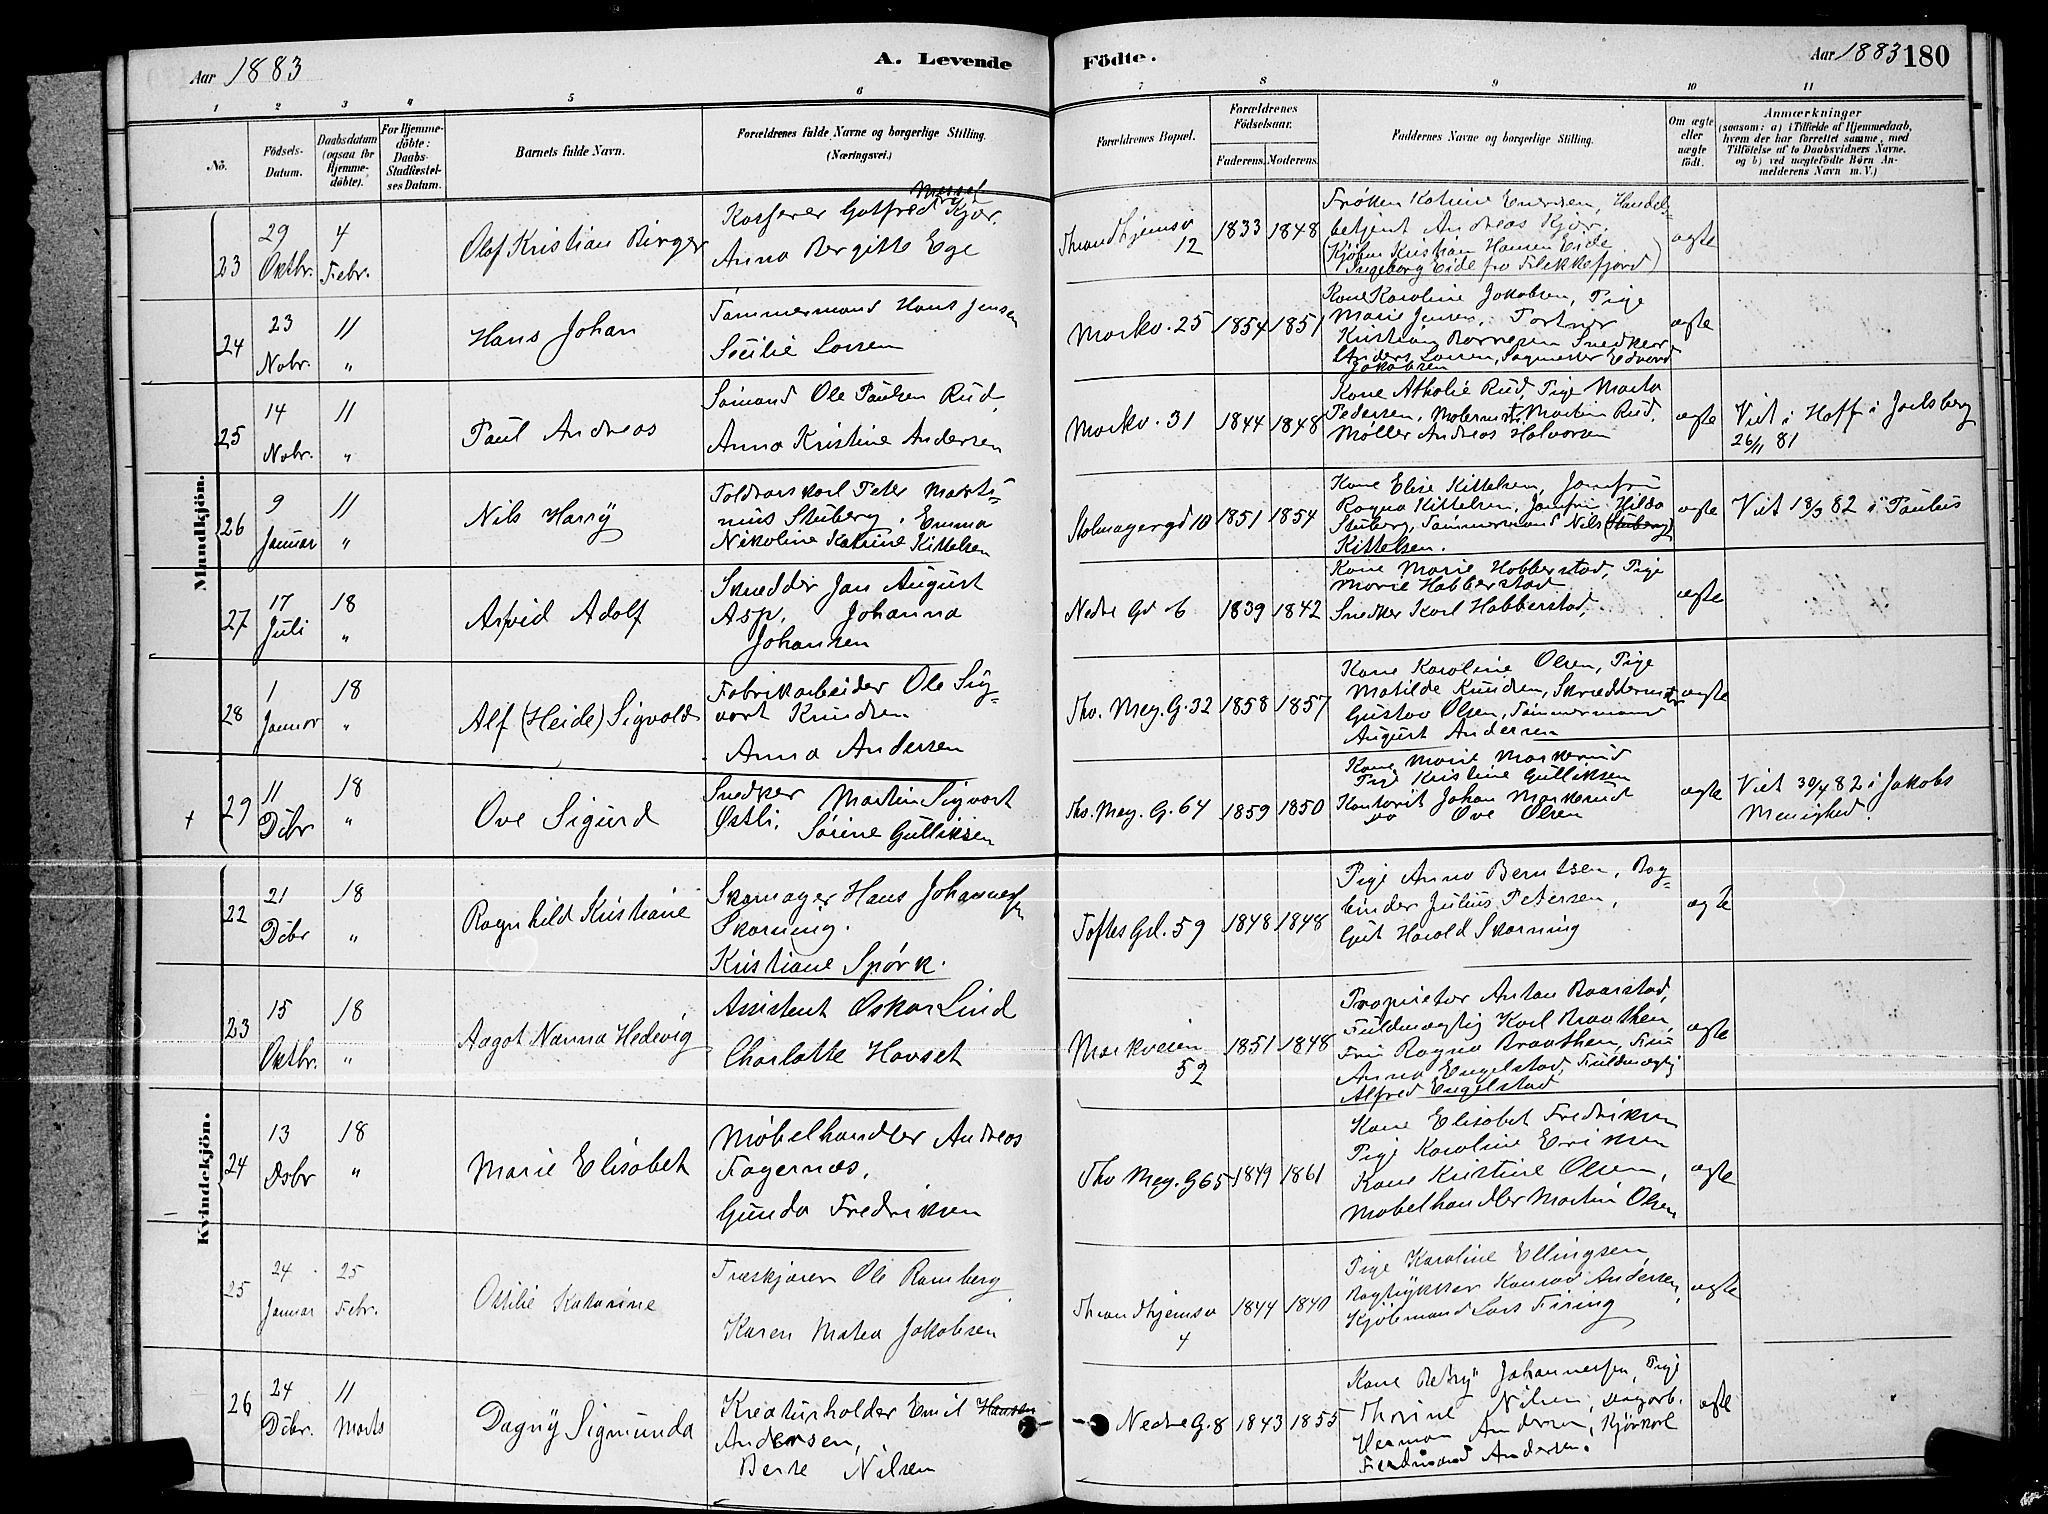 Aar 1883
A. Levende
Födte.
Aar 1883
180
1 2 3 4 5 6 7 8 9 10 11
Nô.
Födsels-
Datum.
Daabsdatum
(ogsaa för
Hjemme-
döbte).
For Hjemme-
döbte:
Daabs-
Stadfæstel-
ses Datum.
Barnets fulde Navn.
Forældrenes fulde Navne og borgerlige Stilling.
(Næringsvei.)
Forældrenes Bopæl.
Forældrenes
Födselsaar.
Faderens.
Moderens.
Faddernes Navne og borgerlige Stilling.
Om ægte
eller
uægte
födt.
Anmærkninger
(saasom: a) i Tilfælde af Hjemmedaab,
hvem der har forrettet samme, med
Tilföielse af to Daabsvidners Navne,
og b) ved uægtefödte Börn An-
melderens Navn m. V.)
Mandkjön.
23
29
Oktbr.
4
Febr.
Olaf Kristian Birger
Kasserer Gotfred Kjær.
Anna Bergitte Ege
Thrandhjemsv
12
1833
1848
Frøken Katrine Enersen, Handels-
betjent Andreas Kjær.
(Kjøbm Kristian Hansen Eide
Ingeborg Eide fra Flekkefjord)
ægte
24
23
Nobr.
11
"
Hans Johan
Tømmermand Hans Jensen
Secilie Larsen
Markv. 25
1854
1851
Kone Karoline Jakobsen, Pige
Marie Jensen, Portner
Kristian Snedker
Anders Larsen, Sagmester Edvard
Jakobsen
ægte
25
14
Nobr.
11
"
Paul Andreas
Sømand Ole Paulsen Rud,
Anna Kristine Andersen
Markv. 31
1844
1848
Kone Athalie Rud, Pige Marta
Pedersen, Malermst. Martin Rud,
Møller Andreas Halvorsen
ægte
Viet i Hoff i Jarlsberg
26/11 81
26
9
Januar
11
"
Nils Harry
Toldvarskarl Peter Marti-
nius Stuberg, Emma
Nikoline Katrine Kittelsen
Holmagergd 10
1851
1854
Kone Elise Kittelsen, Jomfru
Ragna Kittelsen, Jomfru Hilda
Stuberg, Tømmermand Nils (Stuberg)
Kittelsen.
ægte
Viet 18/3 82 i Paulus
27
17
Juli
18
"
Arvid Adolf
Skrædder Jan August
Asp, Johanna
Johansen
Nedre Gd 6
1839
1842
Kone Marie Habberstad, Pige
Marie Habberstad
Snedker Karl Habberstad.
ægte
28
1
Januar
18
"
Alf (Heide) Sigvald
Fabrikarbeider Ole Sig-
vart Knudsen
Anna Andersen
Thv. Mey. G. 32
1858
1857
Kone Karoline Olsen, Pige
Matilde Knudsen, Skræddermster
Gustav Olsen, Tømmermand
August Andersen
ægte
+
29
11
Dcbr
18
"
Ove Sigurd
Snedker Martin Sigvart
Østli, Sørine Gulliksen
Thv. Mey. G. 64
1859
1850
Kone Marie Markerud
Pige Kristine Gulliksen
Kontorist Johan Markerud
do Ove Olsen
ægte
Viet 30/4 82 i Jakobs
Menighed.
Kvindekjön.
22
21
Dcbr
18
"
Ragnhild Kristiane
Skomager Hans Johannesen
Skarning.
Kristiane Spørk.
Toftes Gd. 59
1848
1848
Pige Anna Berntsen, Bog-
binder Julius Petersen,
Gut Harald Skarning
ægte
23
15
Oktbr.
18
"
Aagot Nanna Hedevig
Assistent Oskar Lind
Charlotte Havset
Markveien
52
1851
1848
Proprietær Anton Baarstad,
Fuldmægtig Karl Braathen,
Fru Ragna Braathen, Fru
Anna Engelstad, Fuldmægtig
Alfred Engelstad
ægte
24
13
Dcbr
18
"
Marie Elisabet
Møbelhandler Andreas
Fagernæs,
Gunda Fredriksen
Thv Mey. G 65
1849
1861
Kone Elisabet Fredriksen
Pige Karoline Eriksen
Kone Kristine Olsen,
Møbelhandler Martin Olsen
ægte
25
24
Januar
25
Febr.
Ottilie Katarine
Træskjærer Ole Ramberg
Karen Mathea Jakobsen
Thrandhjemsv
4
1844
1840
Pige Karoline Ellingsen,
Bogtrykker Konrad Andersen,
Kjøbmand Lars Firing
ægte
26
24
Dcbr.
11
Marts
Dagny Sigmunda
Kreaturholder Emil Hansen
Andersen,
Berte Nilsen
Nedre G. 8
1843
1855
Kone Betsy Johannesen, Pige
Thorine Nilsen, Dagarb.
Herman Andersen, Kjørkarl
Ferdinand Andersen.
ægte